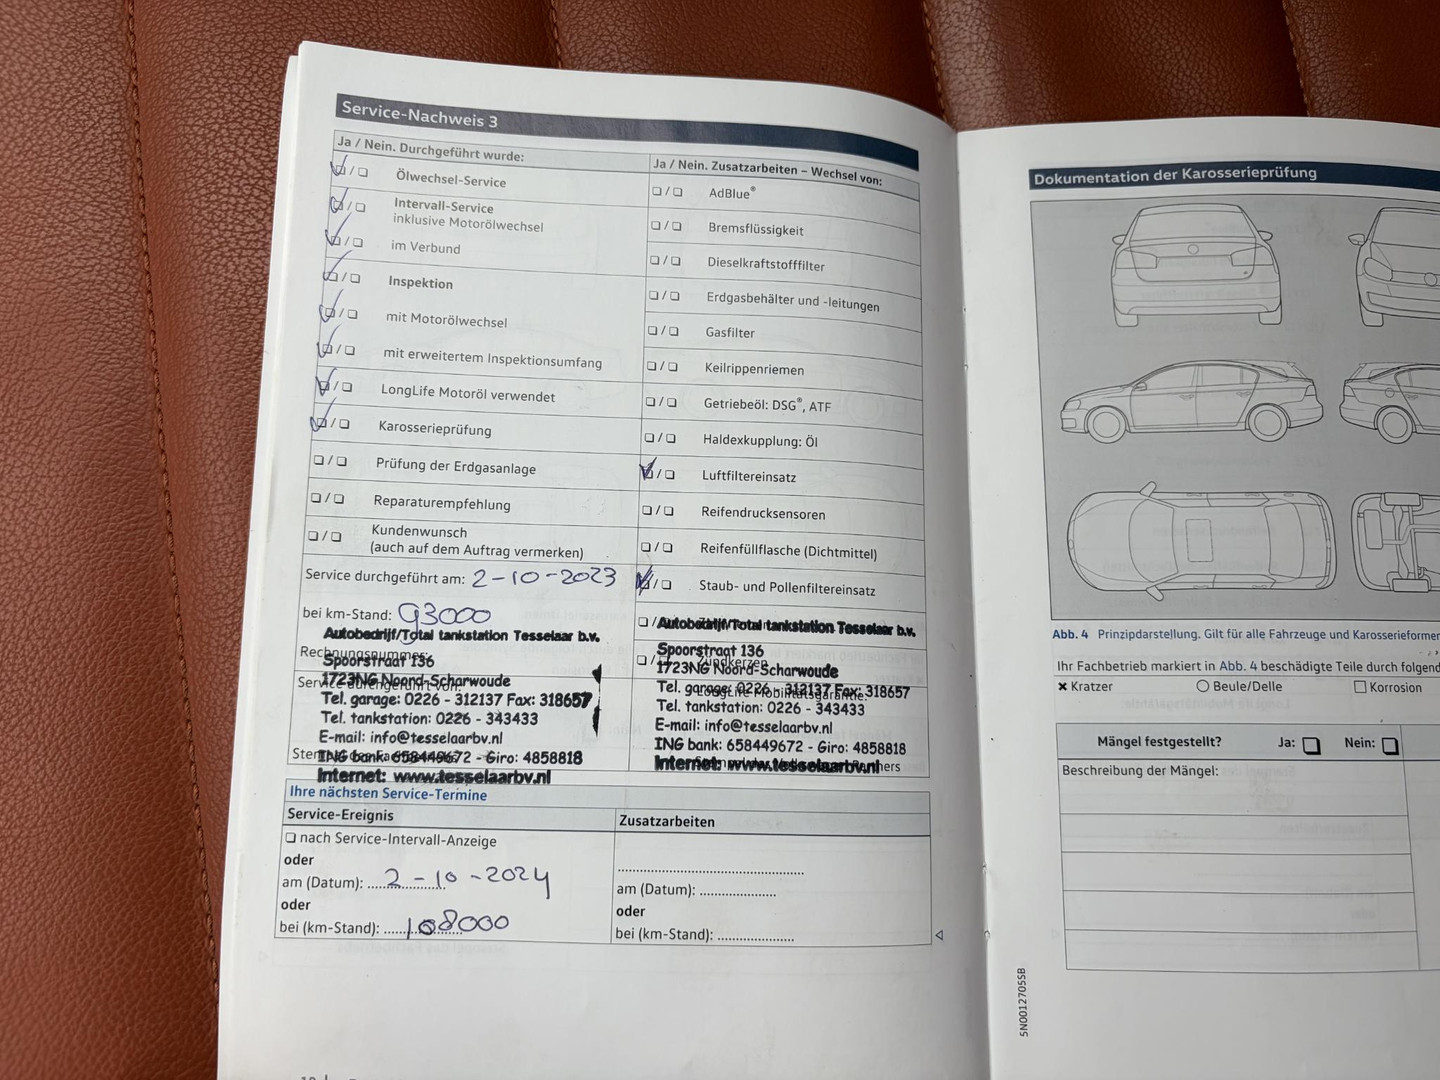 Service-Nachweis 3
Ja / Nein. Durchgeführt wurde:
Ölwechsel-Service
Intervall-Service
inklusive Motorölwechsel
im Verbund
Inspektion
mit Motorölwechsel
mit erweitertem Inspektionsumfang
LongLife Motoröl verwendet
Karosserieprüfung
Prüfung der Erdgasanlage
Reparaturempfehlung
Kundenwunsch
(auch auf dem Auftrag vermerken)
Service durchgeführt am: 2-10-2023
bei km-Stand: 93000
Autobedrijf/Total tankstation Tesselaar b.v.
Rechnungsnummer:
Spoorstraat 136
1723NG Noord-Scharwoude
Service durchgeführt von:
Tel. garage: 0226 - 312137 Fax: 318657
Tel. tankstation: 0226 - 343433
E-mail: info@tesselaarbv.nl
ING bank: 658449672 - Giro: 4858818
Internet: www.tesselaarbv.nl
Ja / Nein. Zusatzarbeiten – Wechsel von:
AdBlue®
Bremsflüssigkeit
Dieselkraftstofffilter
Erdgasbehälter und -leitungen
Gasfilter
Keilrippenriemen
Getriebeöl: DSG®, ATF
Haldexkupplung: Öl
Luftfiltereinsatz
Reifendrucksensoren
Reifenfüllflasche (Dichtmittel)
Staub- und Pollenfiltereinsatz
Autobedrijf/Total tankstation Tesselaar b.v.
Spoorstraat 136
Zündkerzen
1723NG Noord-Scharwoude
Tel. garage: 0226 - 312137 Fax: 318657
LongLife Mobilitätsgarantie:
Tel. tankstation: 0226 - 343433
E-mail: info@tesselaarbv.nl
ING bank: 658449672 - Giro: 4858818
Internet: www.tesselaarbv.nl
Ihre nächsten Service-Termine
Service-Ereignis
nach Service-Intervall-Anzeige
oder
am (Datum): 2-10-2024
oder
bei (km-Stand): 108000
Zusatzarbeiten
am (Datum):
oder
bei (km-Stand):
Dokumentation der Karosserieprüfung
Abb. 4 Prinzipdarstellung. Gilt für alle Fahrzeuge und Karosserieformen
Ihr Fachbetrieb markiert in Abb. 4 beschädigte Teile durch folgend
Kratzer Beule/Delle Korrosion
Mängel festgestellt? Ja: Nein:
Beschreibung der Mängel:
5N0012705SB